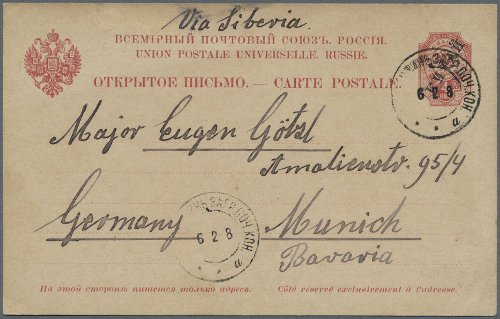 Via Siberia.
ВСЕМІРНЫЙ ПОЧТОВЫЙ СОЮЗЪ. РОССІЯ.
UNION POSTALE UNIVERSELLE. RUSSIE.
ОТКРЫТОЕ ПИСЬМО. — CARTE POSTALE.
6 2 8
а
Major Eugen Götzl
Amalienstr. 95/4
Germany Munich
Bavaria
ЗАГР. ПОЧ. КОН.
6 2 8
а
На этой сторонѣ пишется только адресъ. Côté réservé exclusivement à l'adresse.